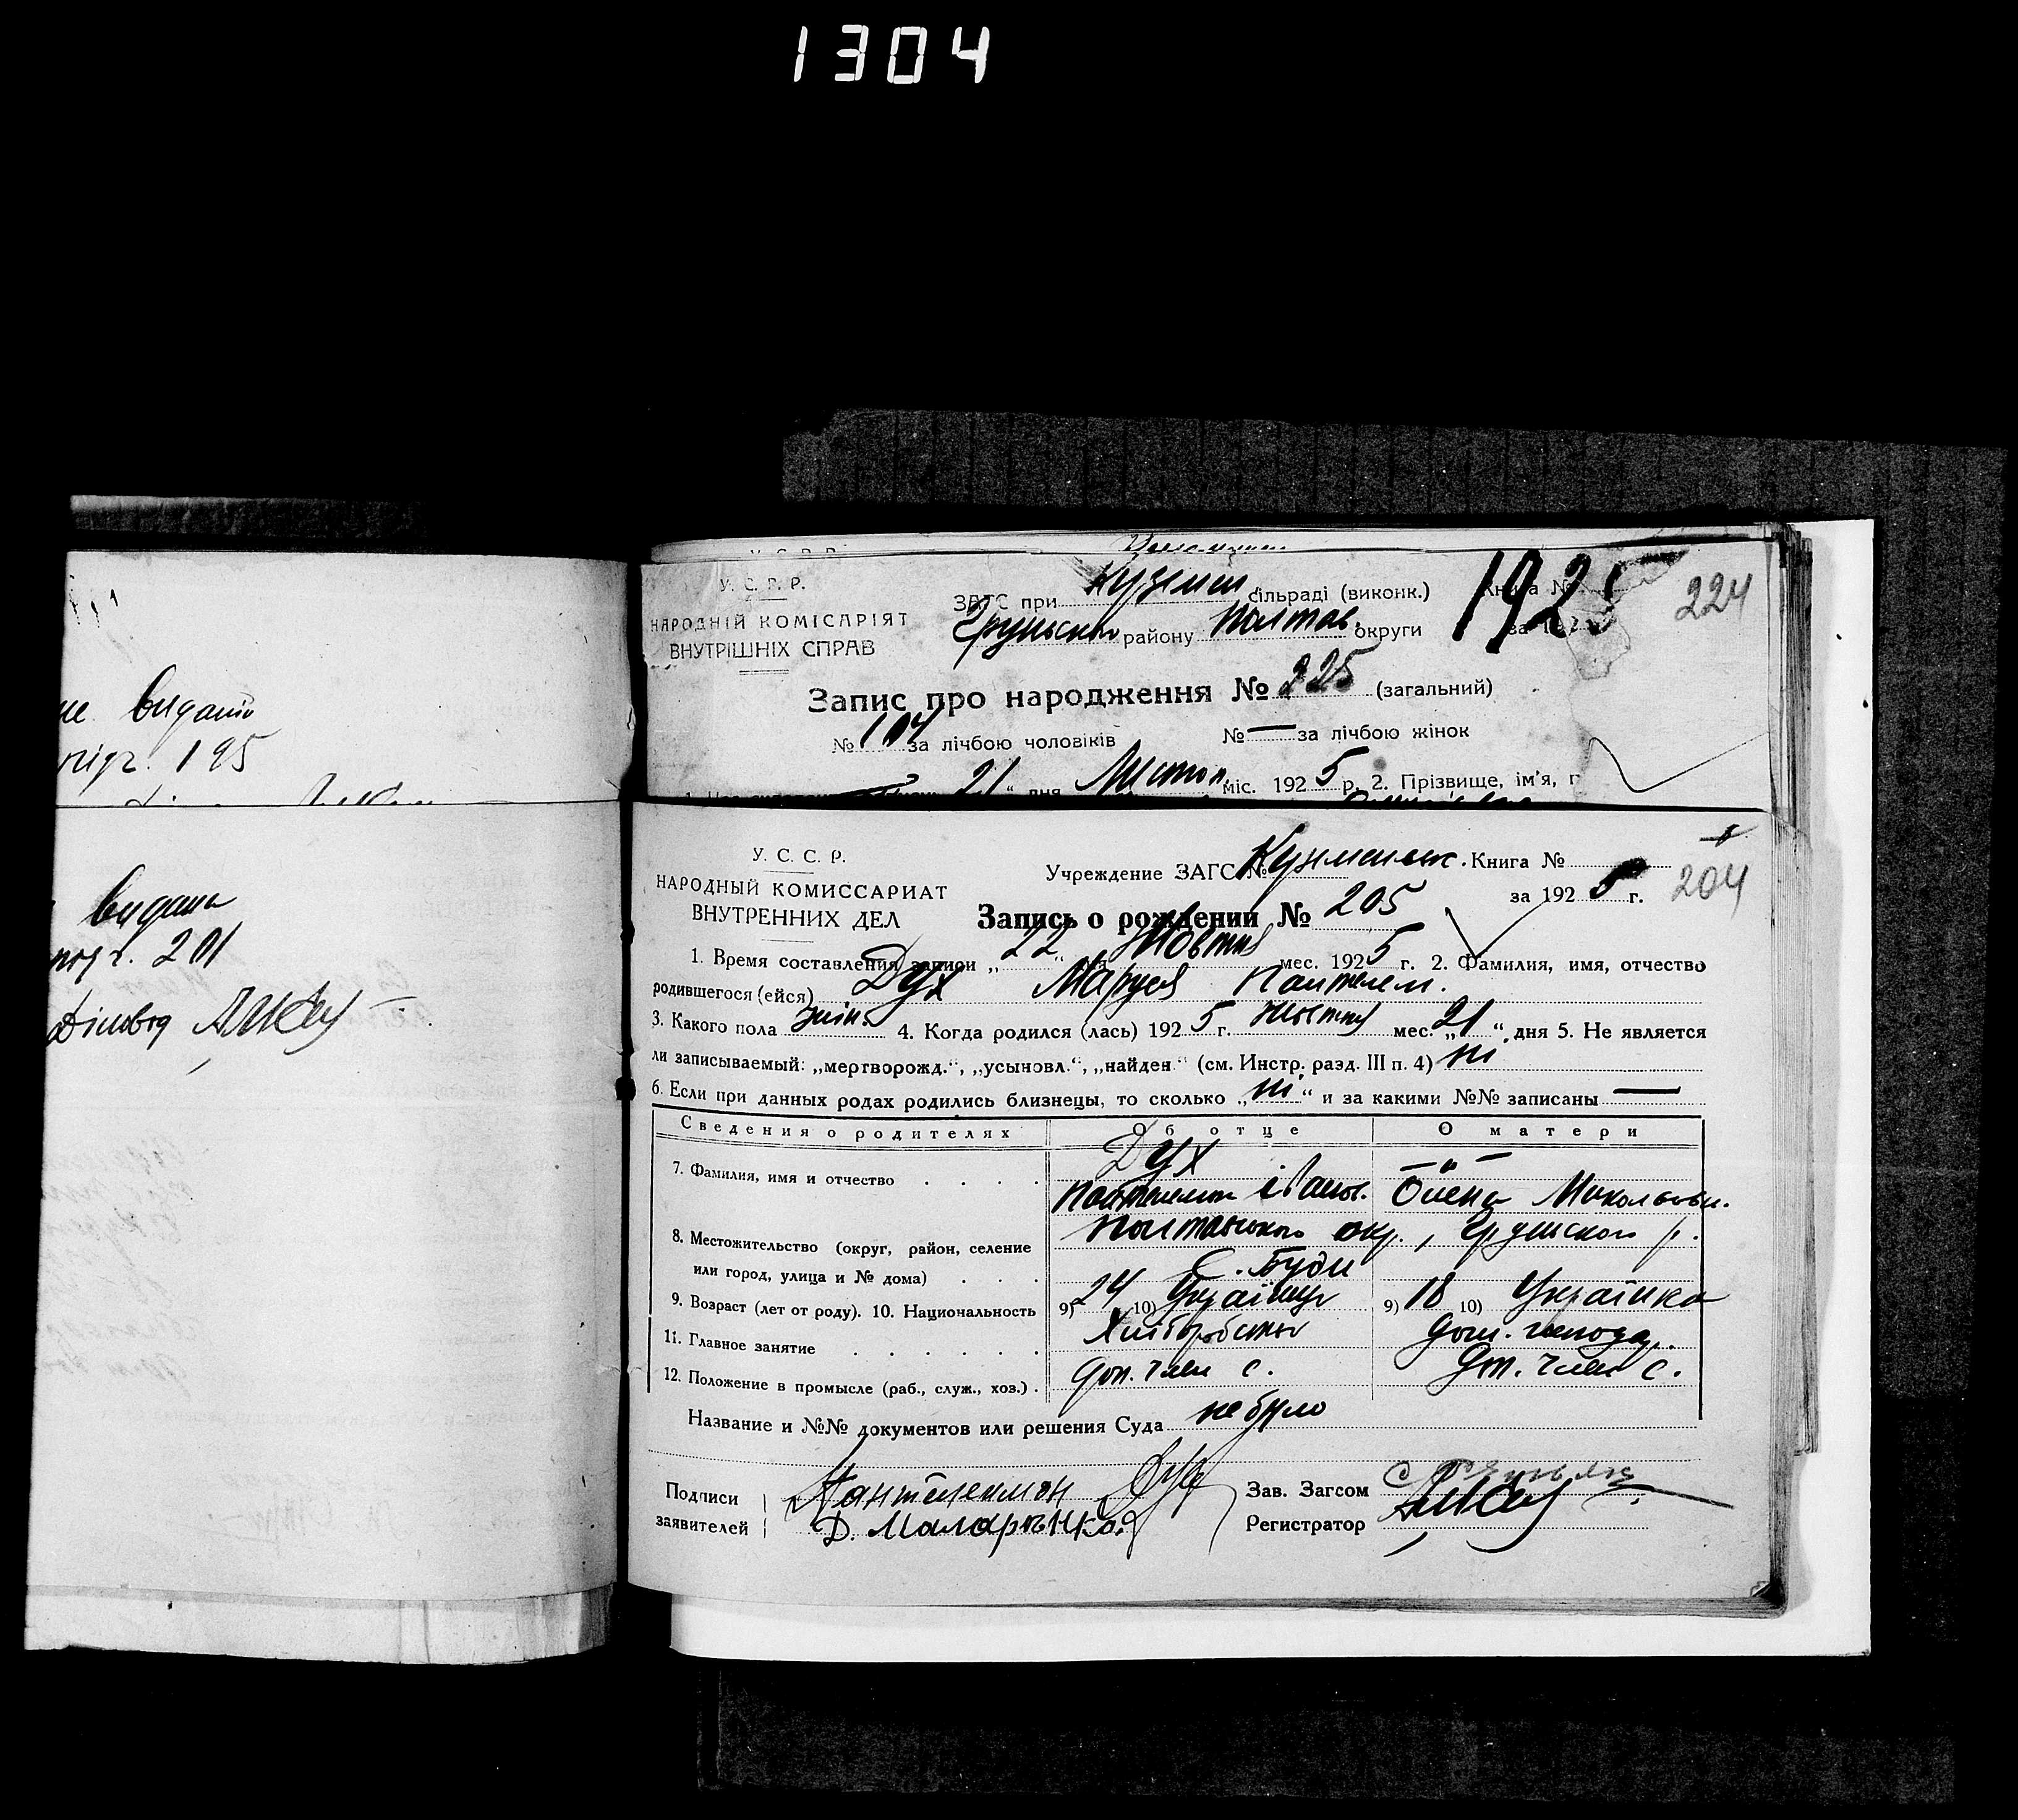 1304
не видано
підг. 195
видана
подг. 201
Діловод
У. С. Р. Р.
НАРОДНІЙ КОМІСАРІЯТ
ВНУТРІШНІХ СПРАВ
ЗАГС при Куземин. сільраді (виконк.) Книга №
Груньсько району Полтав. округи за 192
1925
224
Запис про народження № 225 (загальний)
№ 104 за лічбою чоловіків № — за лічбою жінок
21 “ дня Листоп. міс. 1925 р. 2. Прізвище, ім'я, п
У. С. С. Р.
НАРОДНЫЙ КОМИССАРИАТ
ВНУТРЕННИХ ДЕЛ
Учреждение ЗАГС № Книга №
за 1925 г.
204
Запись о рождении № 205
1. Время составления записи „22“ дня Жовтня мес. 1925 г. 2. Фамилия, имя, отчество
родившегося (ейся) Дух Маруся Пантелем.
3. Какого пола жін. 4. Когда родился (лась) 1925 г. Жовтня мес. „21“ дня 5. Не является
ли записываемый: „мертворожд.“, „усыновл.“, „найден“ (см. Инстр. разд. III п. 4) ні
6. Если при данных родах родились близнецы, то сколько „ні“ и за какими №№ записаны —
Сведения о родителях Об отце О матери
7. Фамилия, имя и отчество . . . . Дух — " —
Пантелемон Іванов. Олена Миколаевн.
8. Местожительство (округ, район, селение Полтавського окр., Груньского р.
или город, улица и № дома) . . . С. Буди
9. Возраст (лет от роду). 10. Национальность 9) 24 10) Українець 9) 18 10) Українка
11. Главное занятие . . . . . . Хліборобство дом. господар.
12. Положение в промысле (раб., служ., хоз.) . доп. член с. доп. член с.
Название и №№ документов или решения Суда не було
Подписи Пантелемон Дух Зав. Загсом
заявителей Д. Маларенко Регистратор